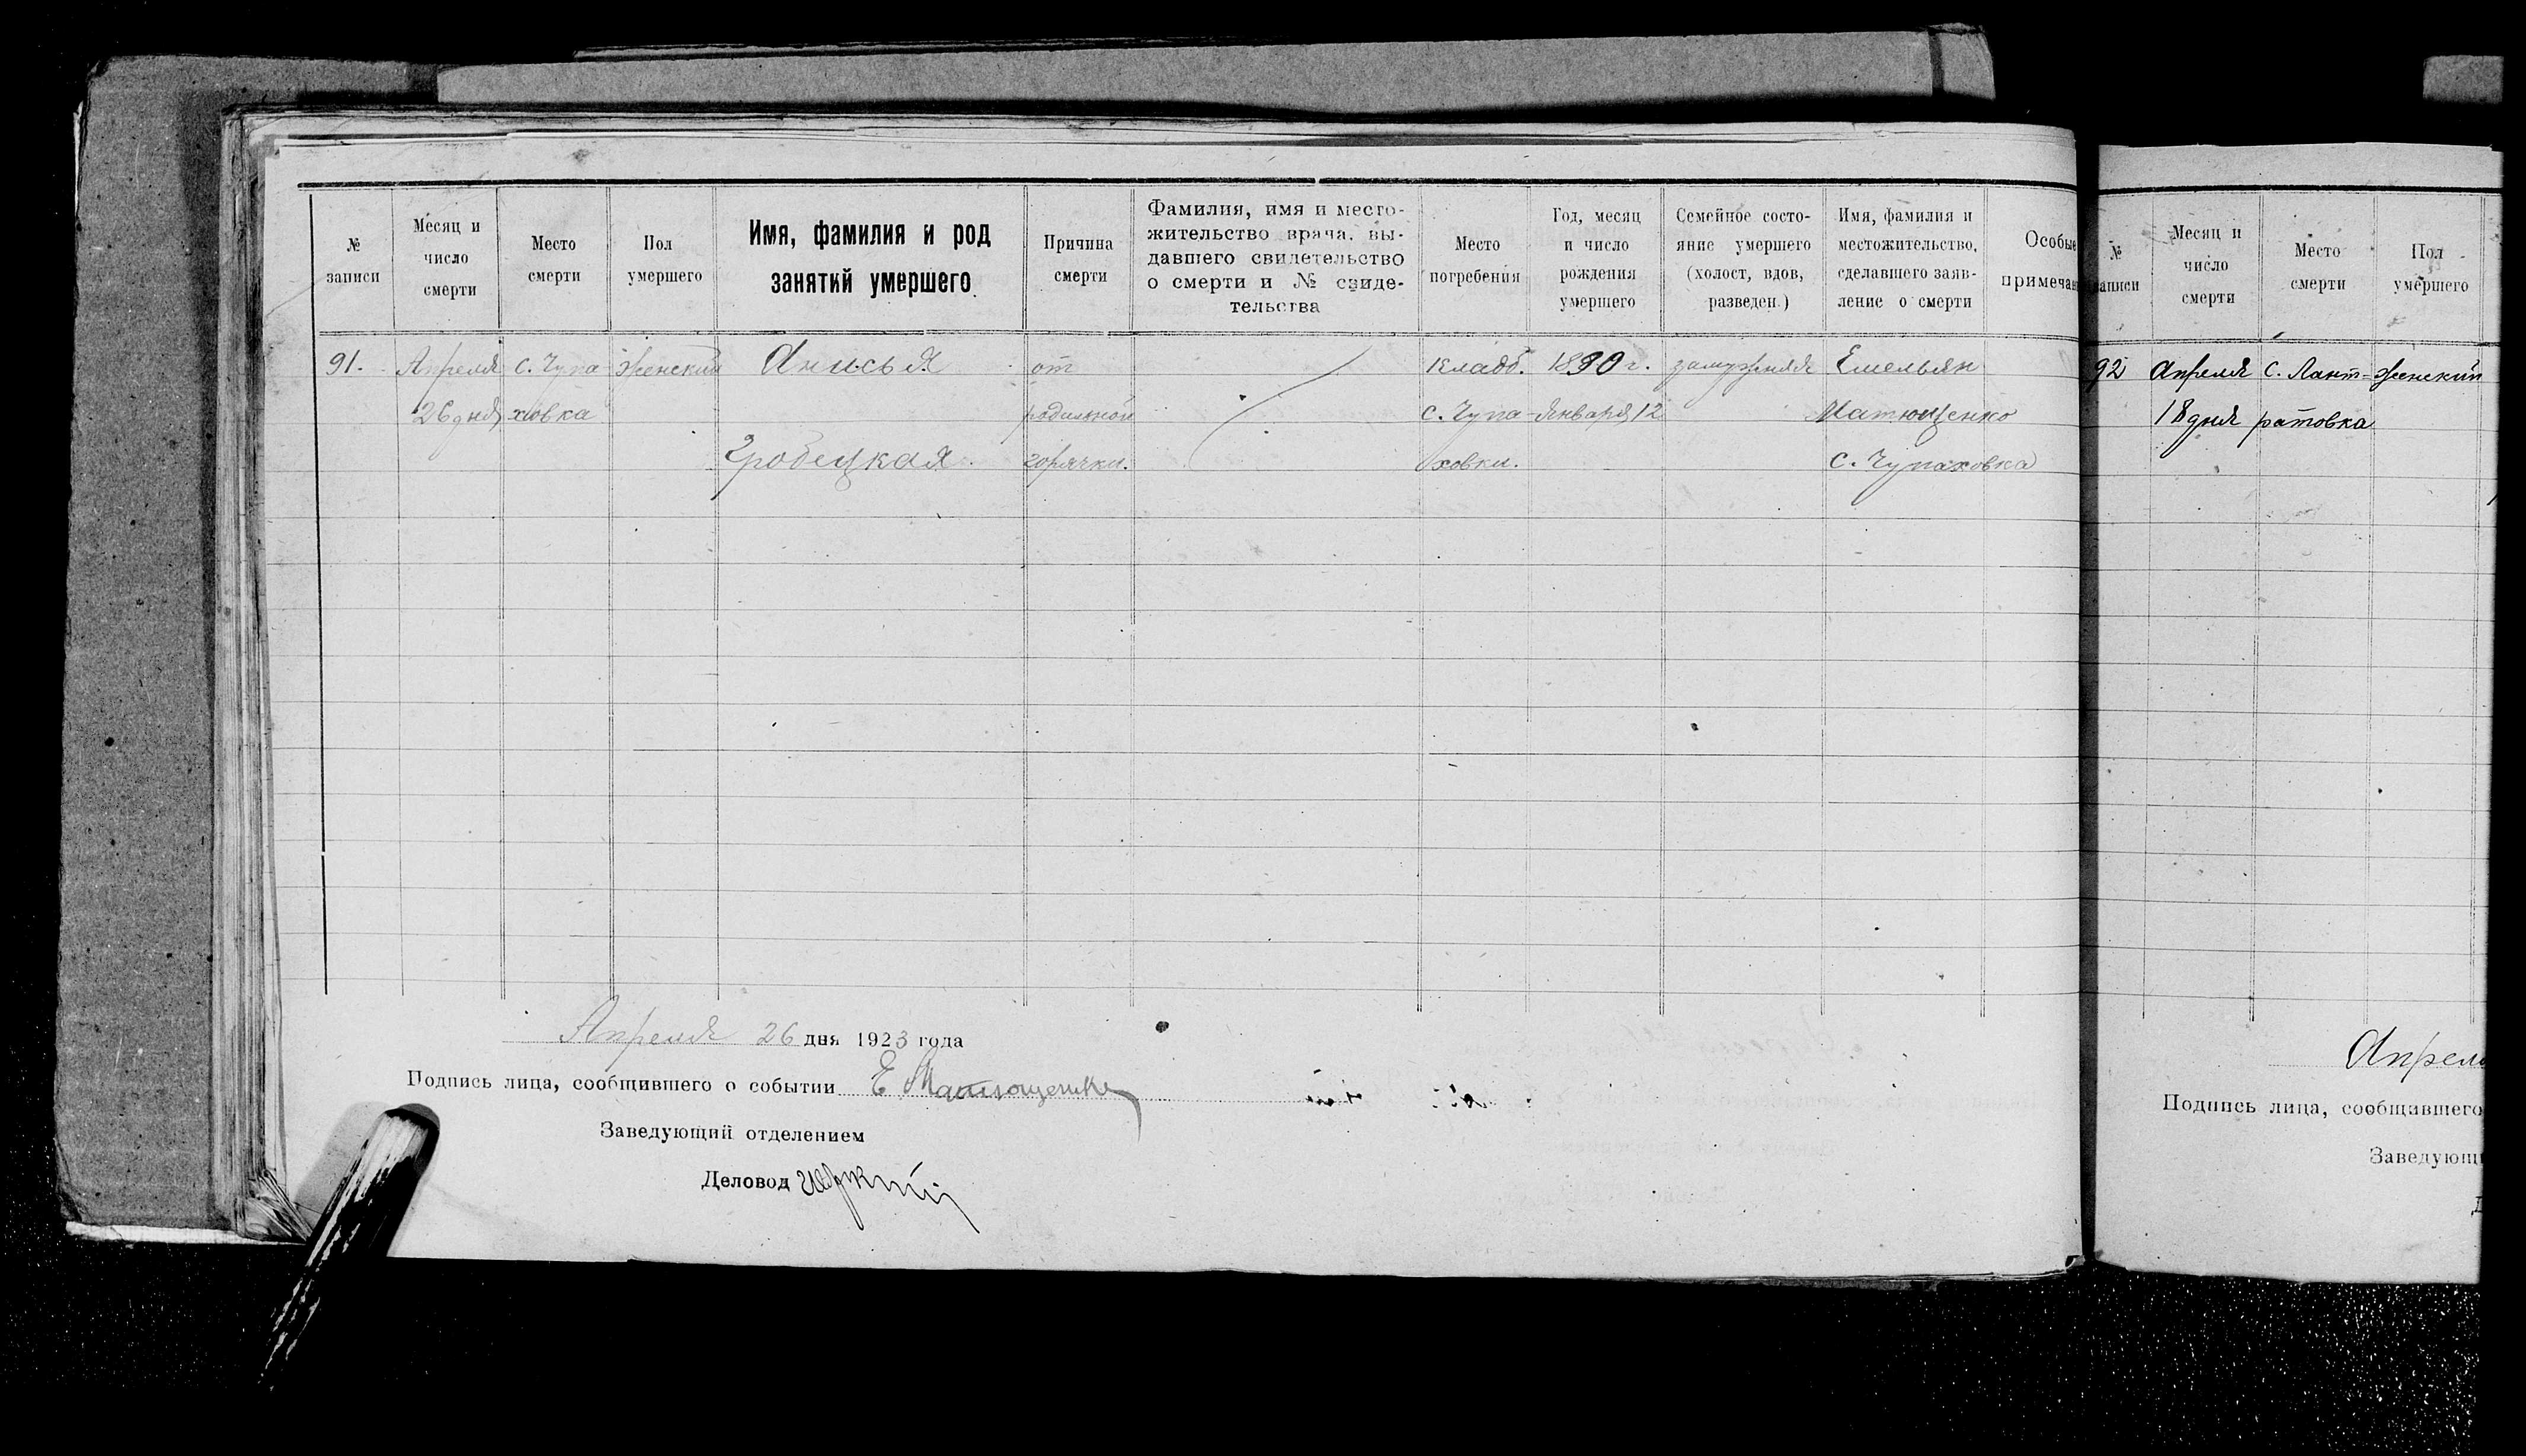 № записи
Месяц и число смерти
Место смерти
Пол умершего
Имя, фамилия и род занятий умершего
Причина смерти
Фамилия, имя и место-
жительство врача, вы-
давшего свидетельство
о смерти и № свиде-
тельства
Место погребения
Год, месяц и число рождения умершего
Семейное состо-
яние умершего
(холост, вдов,
разведен.)
Имя, фамилия и
местожительство,
сделавшего заяв-
ление о смерти
Особые
примечан
91. Апреля с. Чупа Женский Анисья от Кладб. 1890 г. замужняя Емельян
26 дня ховка родильной с. Чупа- Января 12 Матющенко
Гробецкая. горячки. ховки. с. Чупаховка
Апреля 26 дня 1923 года
Подпись лица, сообщившего о событии Е Матющенко
Заведующий отделением
Деловод
№ записи
Месяц и число смерти
Место смерти
Пол умершего
92 Апреля с. Лант- Женский
18 дня ратовка
Апреля
Подпись лица, сообщившего
Заведующи